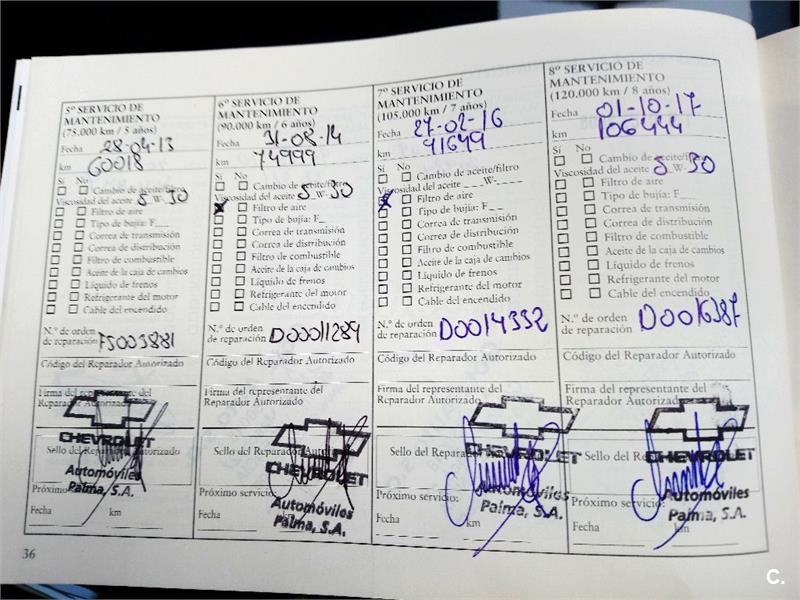 5º SERVICIO DE
MANTENIMIENTO
(75.000 km / 5 años)
Fecha 28-04-13
km 60018
Sí No
Cambio de aceite/filtro
Viscosidad del aceite 5-W-30
Filtro de aire
Tipo de bujía: F__
Correa de transmisión
Correa de distribución
Filtro de combustible
Aceite de la caja de cambios
Líquido de frenos
Refrigerante del motor
Cable del encendido
N.º de orden
de reparación FS003881
Código del Reparador Autorizado
Firma del representante del
Reparador Autorizado
CHEVROLET
Sello del Reparador Autorizado
Automóviles
Palma, S.A.
Próximo servicio:
Fecha km
6º SERVICIO DE
MANTENIMIENTO
(90.000 km / 6 años)
Fecha 31-08-14
km 74999
Sí No
Cambio de aceite/filtro
Viscosidad del aceite 5-W-30
Filtro de aire
Tipo de bujía: F_
Correa de transmisión
Correa de distribución
Filtro de combustible
Aceite de la caja de cambios
Líquido de frenos
Refrigerante del motor
Cable del encendido
N.º de orden
de reparación D00011289
Código del Reparador Autorizado
Firma del representante del
Reparador Autorizado
Sello del Reparador Autorizado
CHEVROLET
Próximo servicio:
Automóviles
Fecha km
Palma, S.A.
7º SERVICIO DE
MANTENIMIENTO
(105.000 km / 7 años)
Fecha 27-02-16
km 91649
Sí No
Cambio de aceite/filtro
Viscosidad del aceite _ _ _W-_ _ _ _
Filtro de aire
Tipo de bujía: F__
Correa de transmisión
Correa de distribución
Filtro de combustible
Aceite de la caja de cambios
Líquido de frenos
Refrigerante del motor
Cable del encendido
N.º de orden
de reparación D0014332
Código del Reparador Autorizado
Firma del representante del
Reparador Autorizado
Sello del Reparador
CHEVROLET
Próximo servicio:
Automóviles
Palma, S.A.
Fecha km
8º SERVICIO DE
MANTENIMIENTO
(120.000 km / 8 años)
Fecha 01-10-17
km 106444
Sí No
Cambio de aceite/filtro
Viscosidad del aceite 5-W-30
Filtro de aire
Tipo de bujía: F__
Correa de transmisión
Correa de distribución
Filtro de combustible
Aceite de la caja de cambios
Líquido de frenos
Refrigerante del motor
Cable del encendido
N.º de orden
de reparación D0016387
Código del Reparador Autorizado
Firma del representante del
Reparador Autorizado
Sello del
CHEVROLET
Próximo servicio:
Automóviles
Palma, S.A.
Fecha km
36
C.